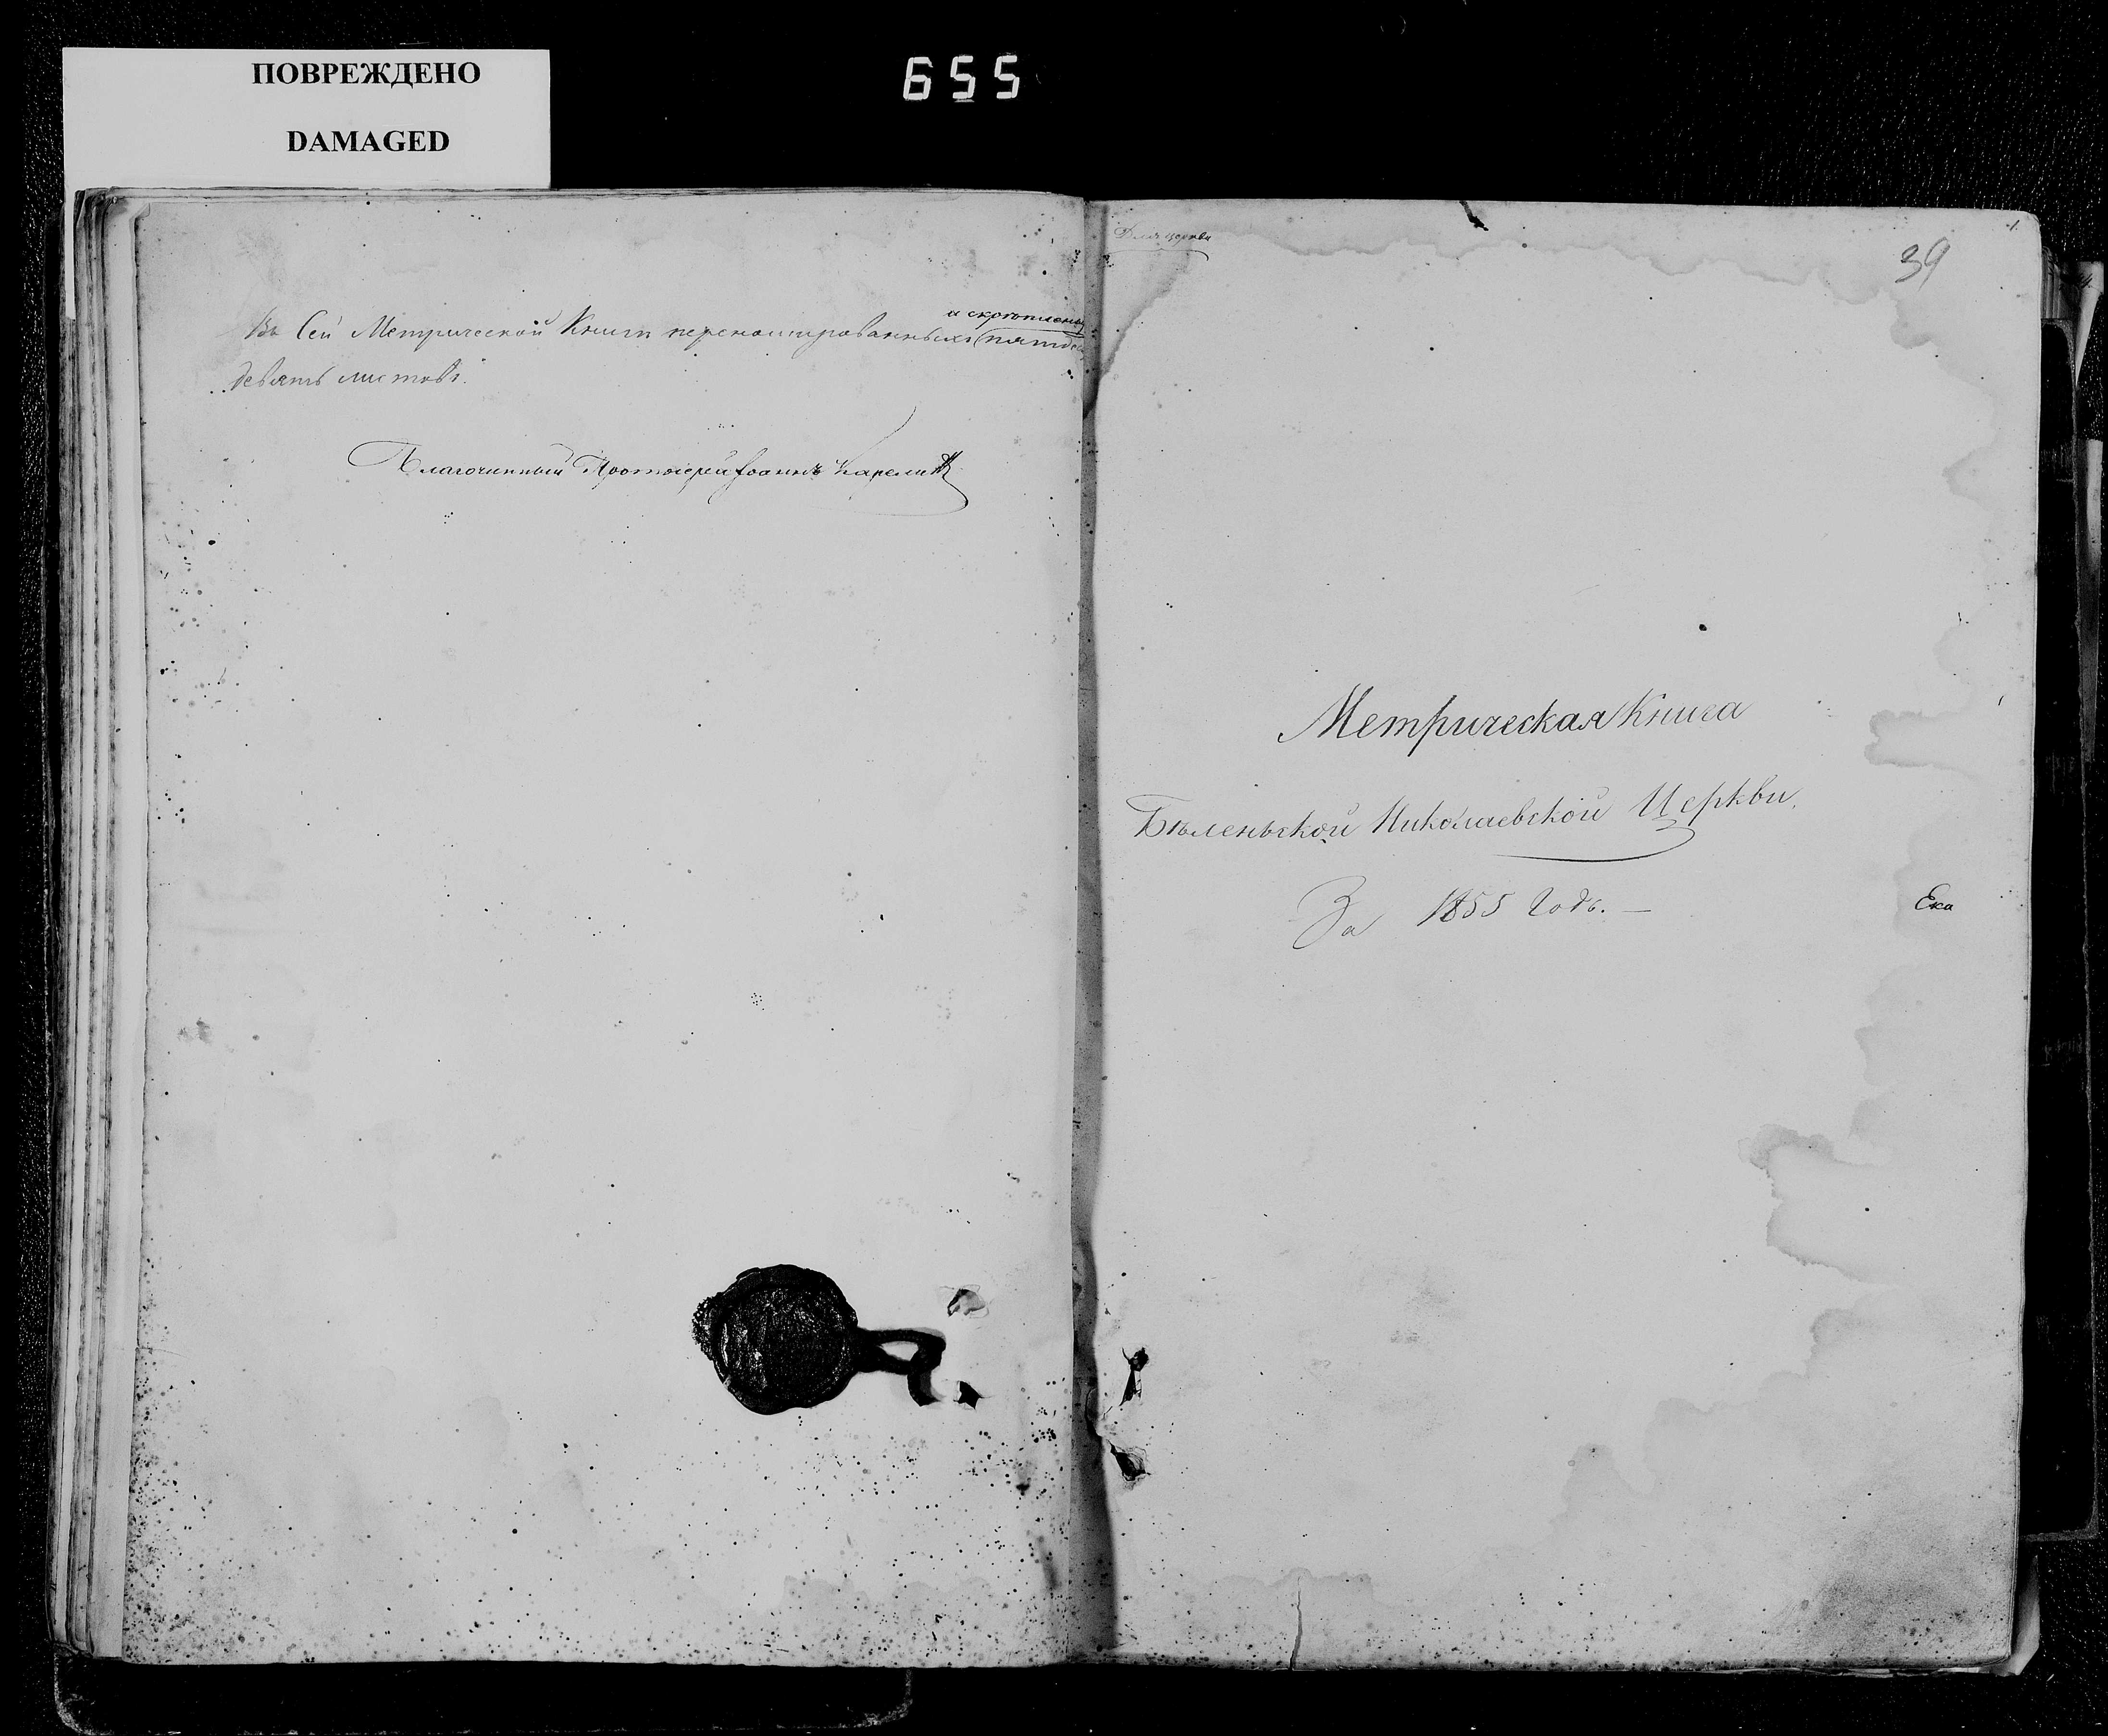 ПОВРЕЖДЕНО
DAMAGED
655
Въ Сей Метрической Книги
и скрѣпленныхъ
девять листовъ.
Благочинный Протоіерей Іоаннъ Карелинъ
Для церкви
39
Метрическая Книга
Бѣленьской Николаевской Церкви.
За 1855 Годъ. —
Ека